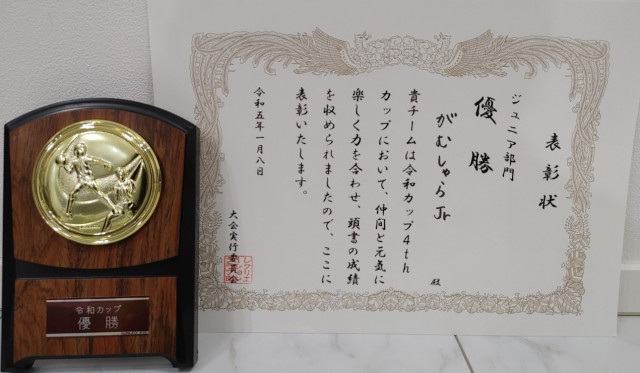 表彰状
ジュニア部門
優勝
がむしゃらJr
殿
貴チームは令和カップ4th
カップにおいて、仲間と元気に
楽しく力を合わせ、頭書の成績
を収められましたので、ここに
表彰いたします。
令和五年一月八日
大会実行委員会
令和カップ
優勝